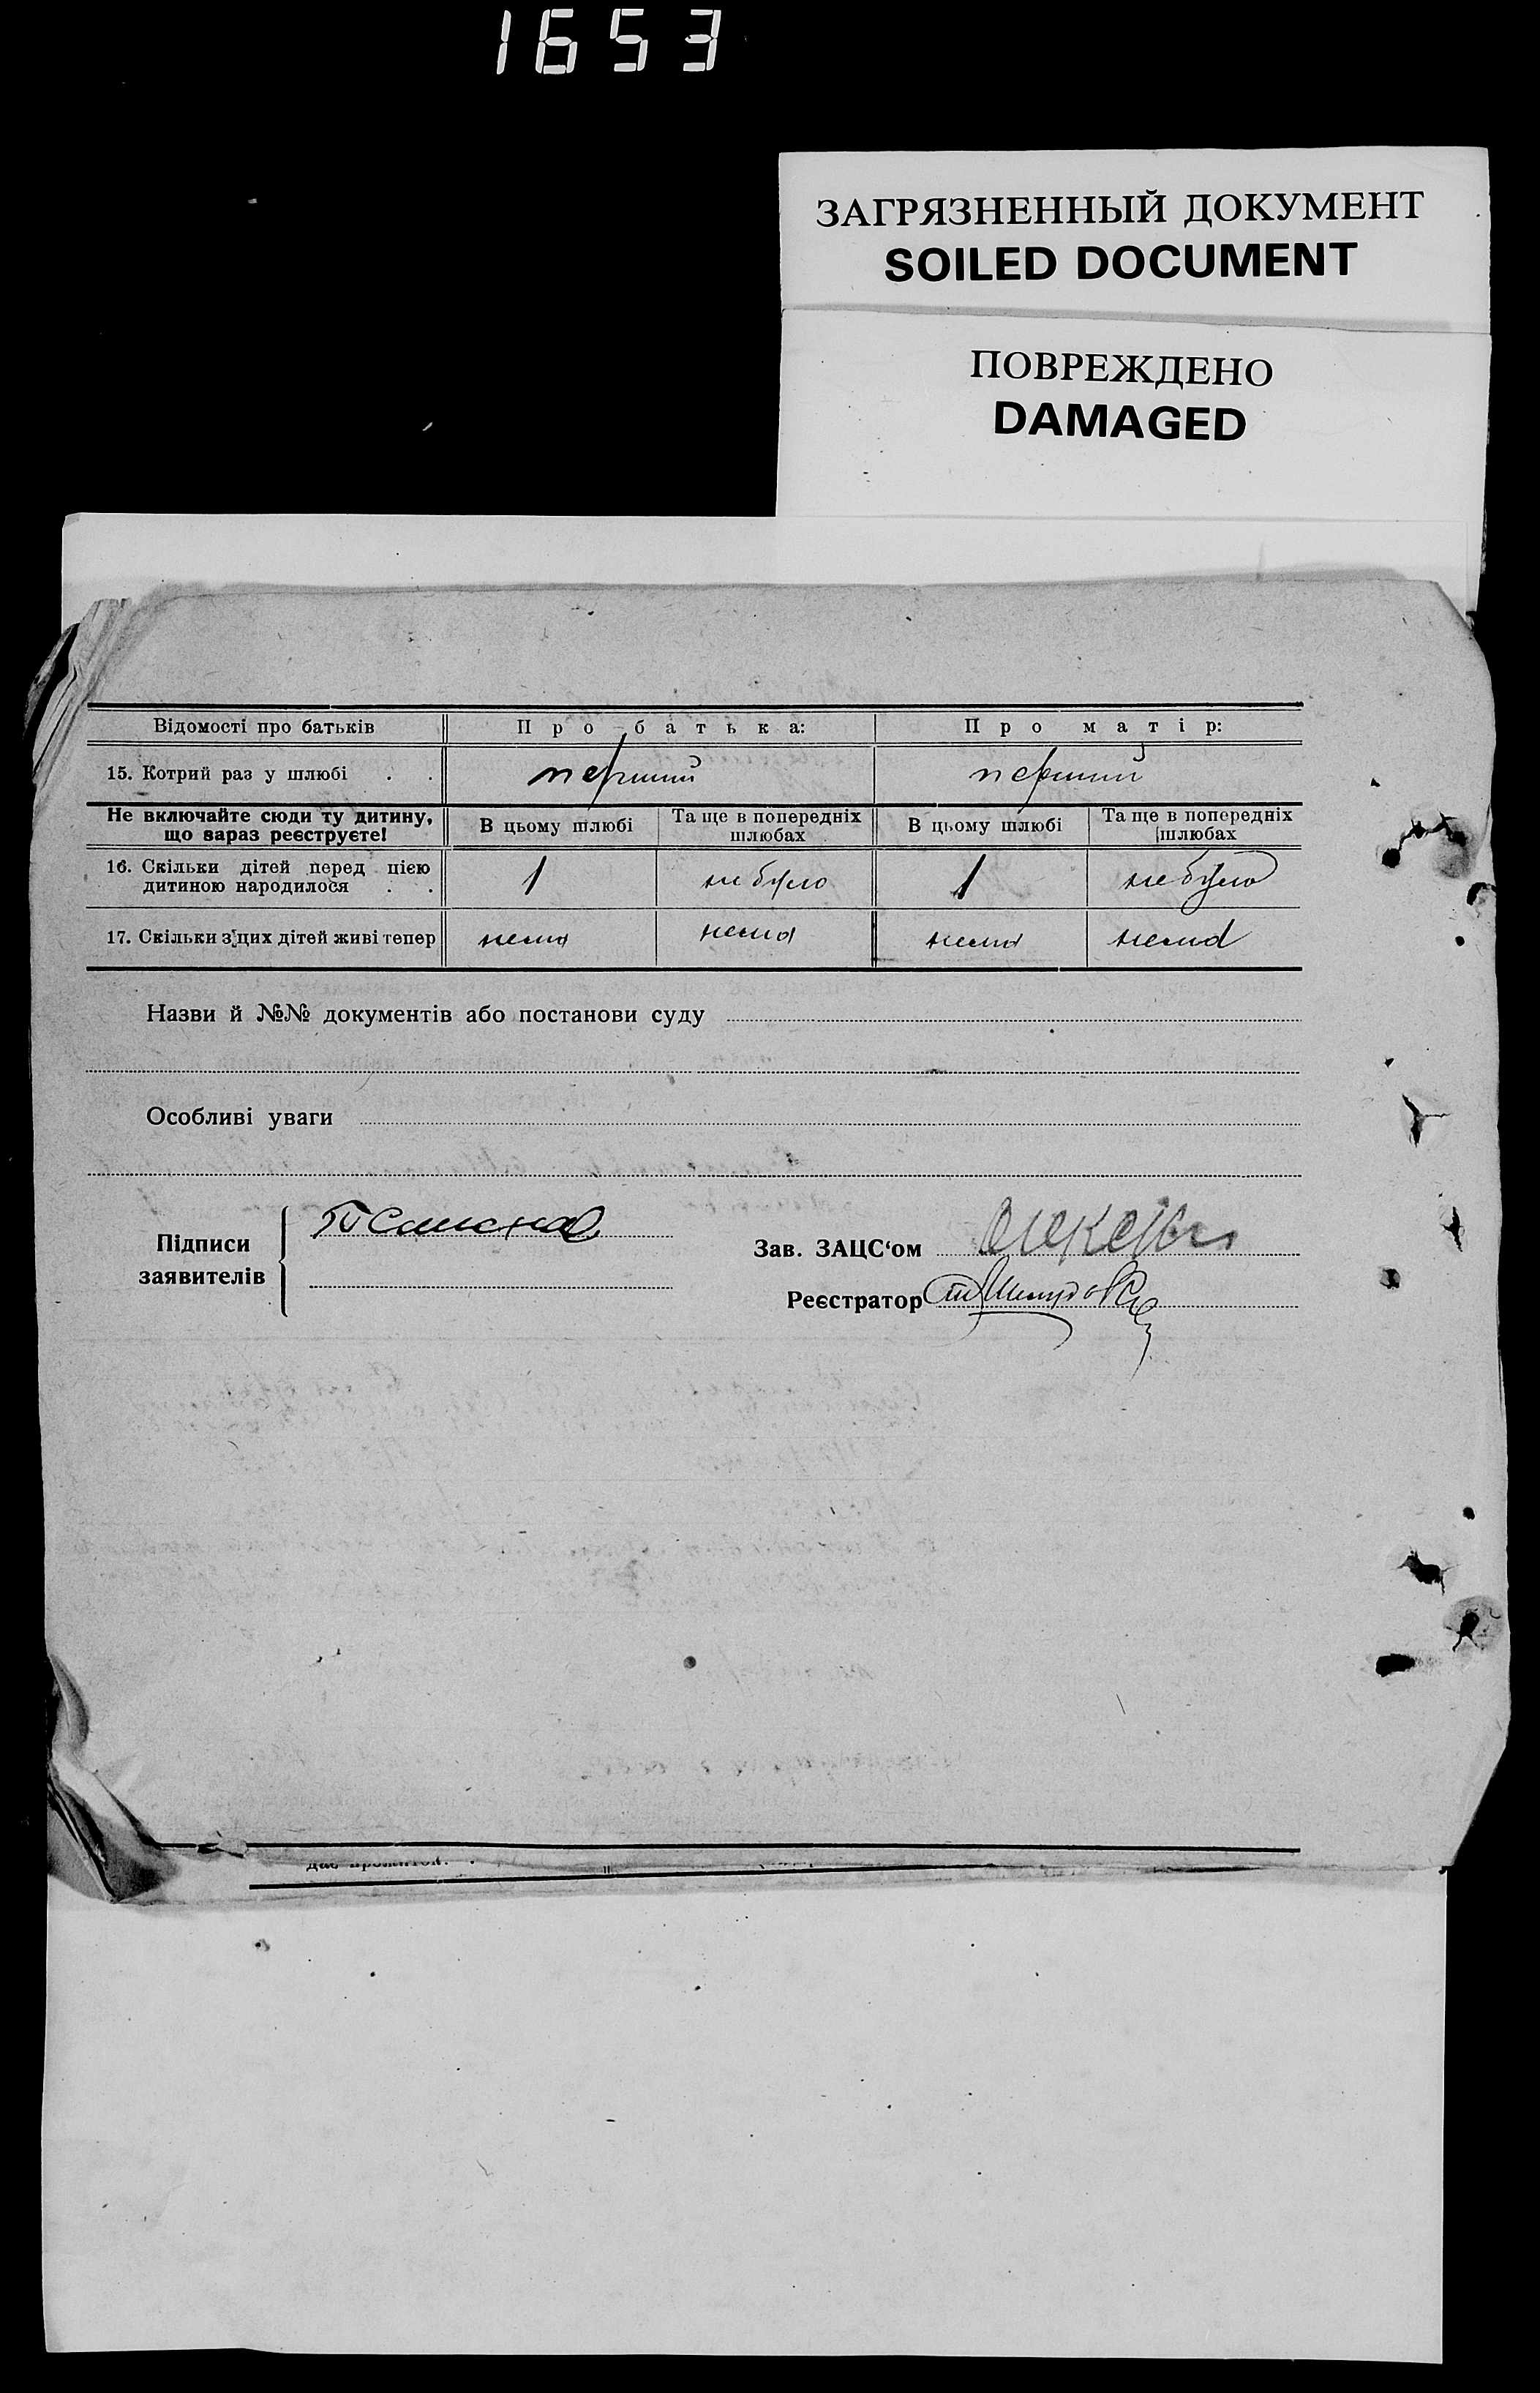 1653
ЗАГРЯЗНЕННЫЙ ДОКУМЕНТ
SOILED DOCUMENT
ПОВРЕЖДЕНО
DAMAGED
Відомості про батьків Про батька: Про матір:
15. Котрий раз у шлюбі . . перший перший
Не включайте сюди ту дитину, що вараз реєструєте! В цьому шлюбі Та ще в попередніх шлюбах В цьому шлюбі Та ще в попередніх шлюбах
16. Скільки дітей перед цією
дитиною народилося . . 1 не було 1 не було
17. Скільки з цих дітей живі тепер нема нема нема нема
Назви й №№ документів або постанови суду
Особливі уваги
Підписи
заявителів
Зав. ЗАЦС‘ом
Реєстратор
дає прожиток. .